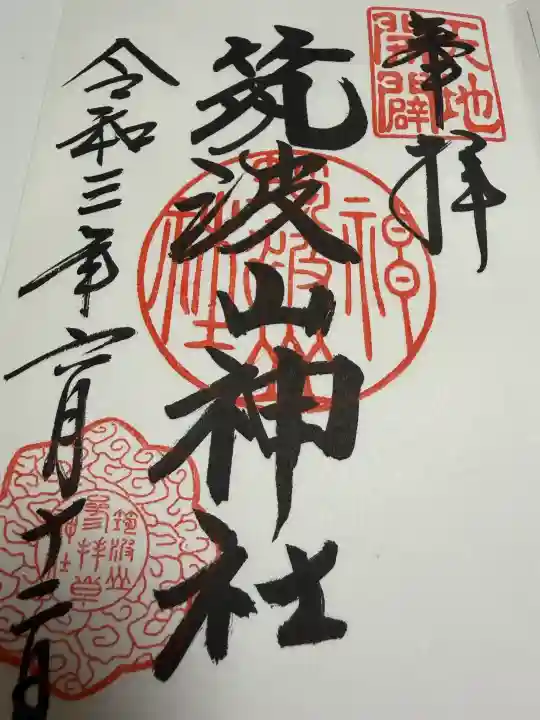 奉拝
天地
開闢
筑波山神社
筑波山
神社
令和三年六月十二日
筑波山
参拝章
神社